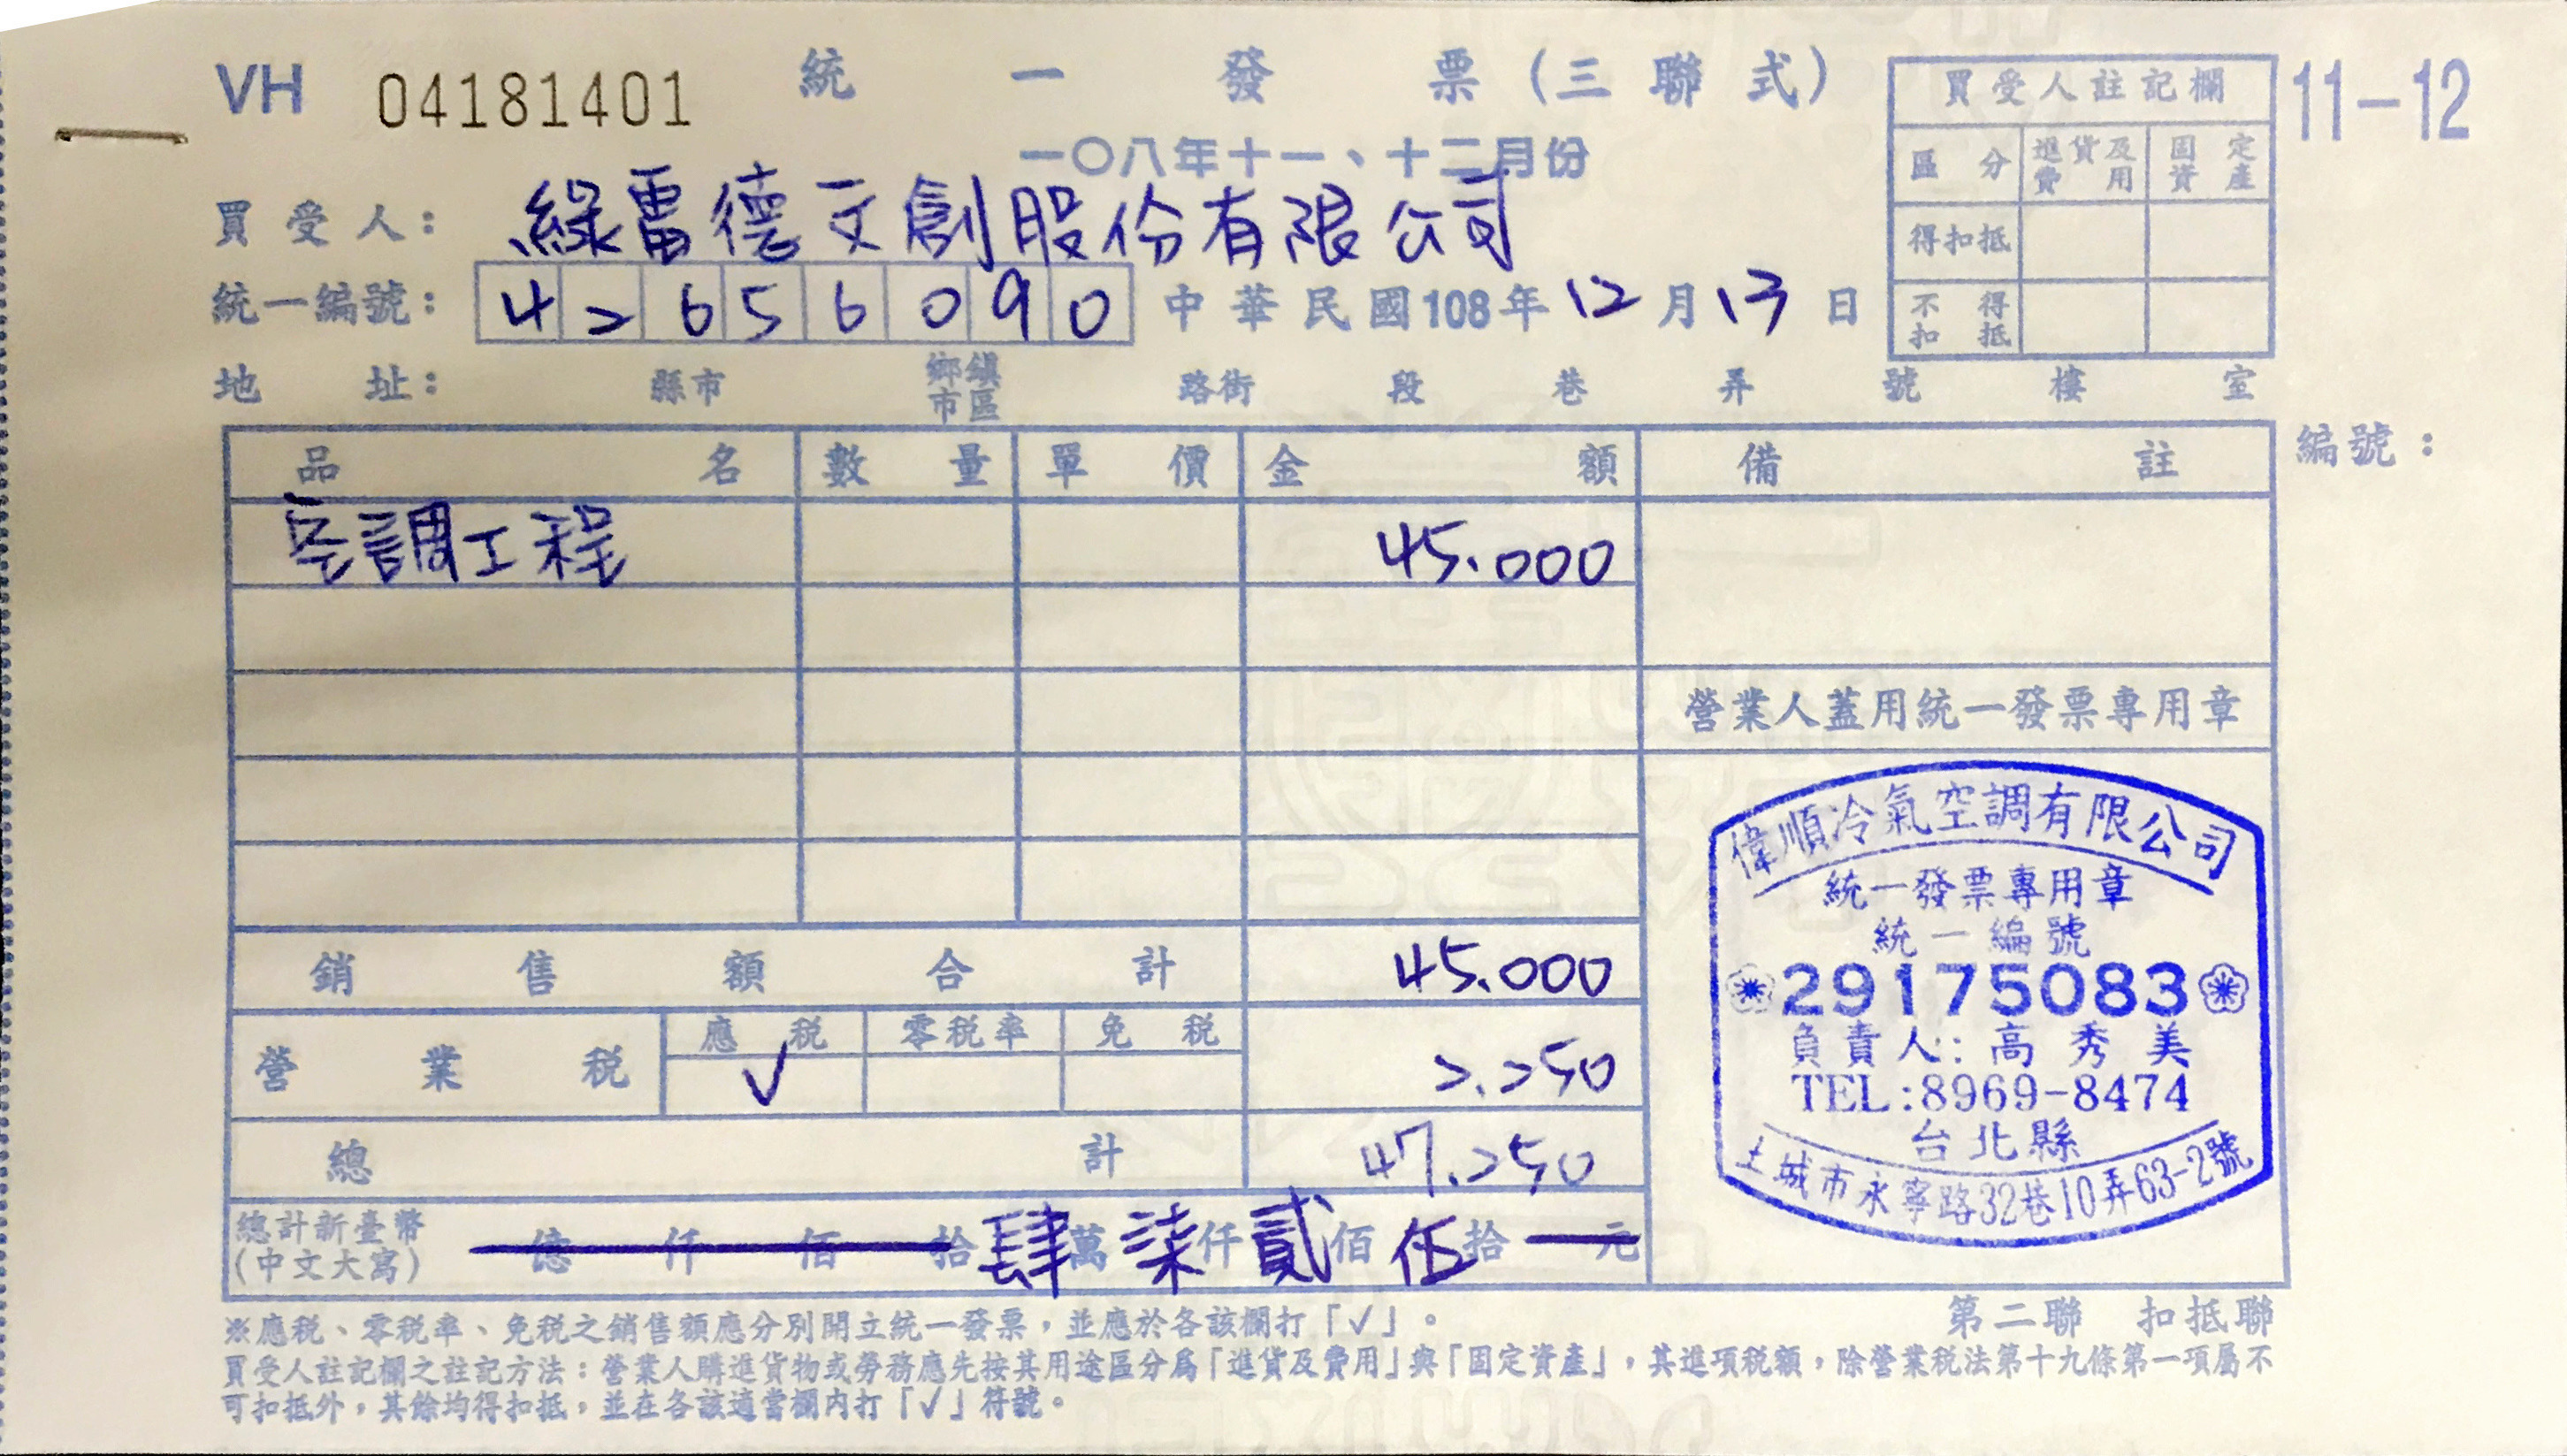 VH 04181401 統一發票(三聯式) 11-12
一〇八年十一、十二月份
買受人註記欄
區分 進貨及費用 固定資產
得扣抵
不得扣抵
買受人: 綠雷德文創股份有限公司
統一編號: 42656090 中華民國108年12月13日
地址: 縣市 鄉鎮市區 路街 段 巷 弄 號 樓 室
品名 數量 單價 金額 備註 編號:
空調工程 45.000
營業人蓋用統一發票專用章
銷售額合計 45.000
營業稅 應稅 零稅率 免稅
√ 2.250
總計 47.250
總計新臺幣(中文大寫) 億 仟 佰 拾肆萬柒仟貳佰伍拾 元
偉順冷氣空調有限公司
統一發票專用章
統一編號
29175083
負責人:高秀美
TEL:8969-8474
台北縣
土城市永寧路32巷10弄63-2號
第二聯 扣抵聯
※應稅、零稅率、免稅之銷售額應分別開立統一發票,並應於各該欄打「√」。
買受人註記欄之註記方法:營業人購進貨物或勞務應先按其用途區分爲「進貨及費用」與「固定資產」,其進項稅額,除營業稅法第十九條第一項屬不
可扣抵外,其餘均得扣抵,並在各該適當欄內打「√」符號。